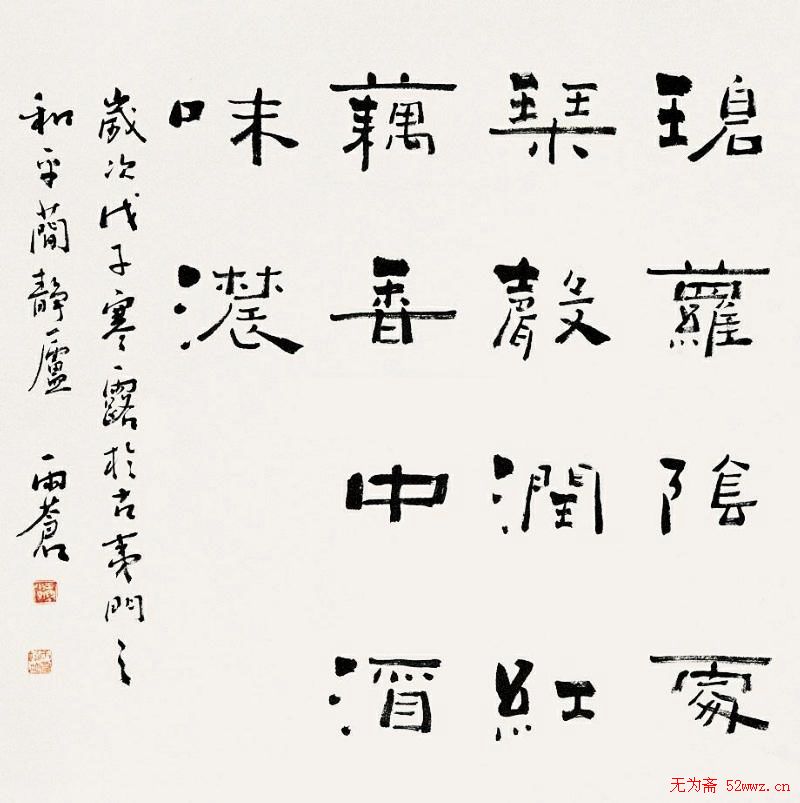 碧蘿陰裏
琹聲潤紅
藕香中酒
味濃
歲次戊子寒露於古夷門之
和平蕳靜廬 雨蒼
无为斋 52wwz.cn